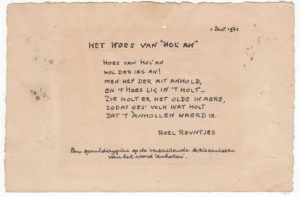 1 Sept. 1972
HET HOES VAN "HOL AN"
HOES VAN HOL AN
HOL DER IES AN!
MEN HEF DER AIT ANHOLD,
EN 'T HOES LIG IN 'T HOLT..
ZIE HOLT ER HET OLDE IN AERE,
ZODAT OES' VOLK WAT HOLT
DAT 'T ANHOLLEN WAERD IS.
ROEL REYNTJES
Een op de verschillende betekenissen
van het woord